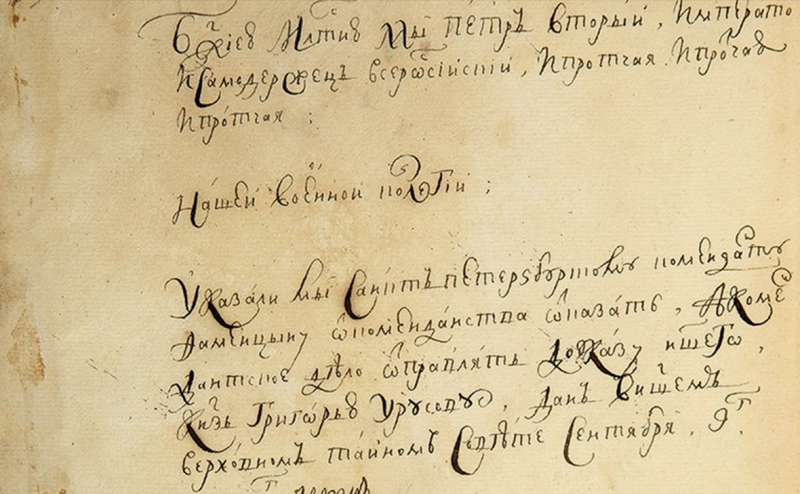 Бж҃іею Млтию Мы ПЕТРЪ Вторыи, Императо
И Самодержецъ всеросїискїи, И протчая И прочая
И протчая :
Нашеи Военнои колегїи ;
Указали мы Санктъпетерзбурскому комендату
Фаминцыну ѿ комендантства ѿказать, А коме
дантское дѣло ѿправлять до Указу ншего,
Кнзь Григорью Урусову, Данъ В нашемъ
верховномъ таиномъ Совѣте Сентября . 9г